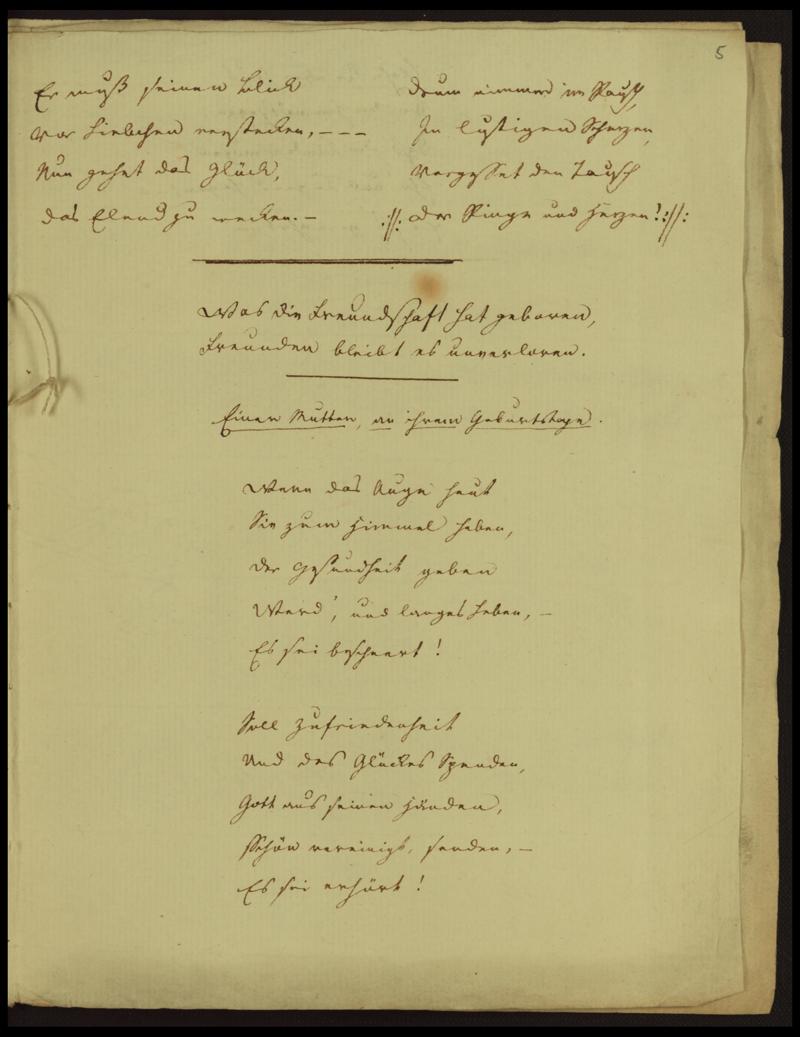 5
Er muß seinen Blick
Vor Liebchen verstecken, – – –
Nun gehet das Glück,
das Elend zu wecken. –
Drum nimmer im Rausch,
In lustigen Scherzen,
Vergesset den Tausch
:/: Der Ringe und Herzen! :/:
Was die Freundschaft hat geboren,
Freunden bleibt es unverloren.
Einer Mutter, an ihrem Geburtstage.
Wenn das Auge heut
Sie zum Himmel heben,
Der Gesundheit geben
Werd', und langes Leben, –
Es sei bescheert!
Soll Zufriedenheit
Und des Glückes Spenden,
Gott aus seinen Händen,
Schön vereinigt, senden, –
Es sei erhört!